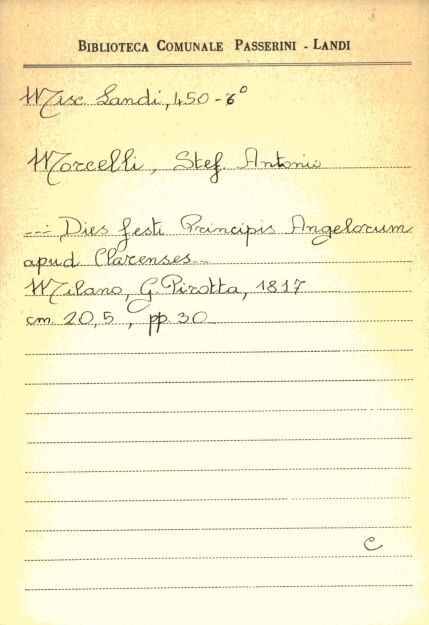 BIBLIOTECA COMUNALE PASSERINI - LANDI
Misc. Landi, 450 - 6°
Morcelli, Stef. Antonio
--- Dies festi Principis Angelorum
apud Clarenses...
Milano, G. Pirotta, 1817
cm. 20,5, pp. 30
C